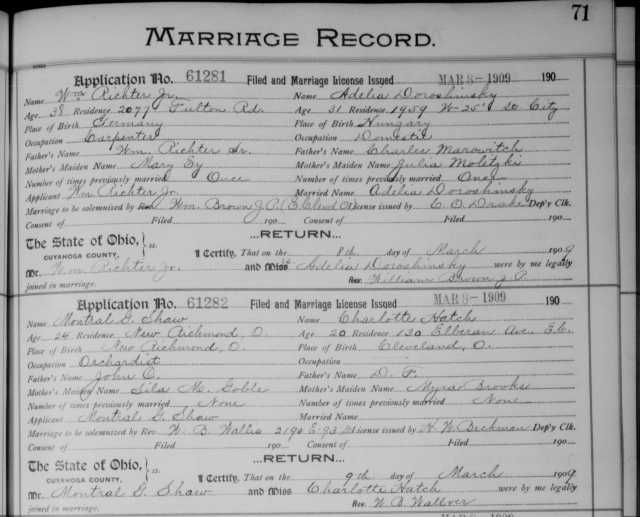 71
MARRIAGE RECORD.
Application No. 61281 Filed and Marriage License Issued MAR 8-1909 190
Name Wm Richter Jr. Name Adelia Doroshinsky
Age 38 Residence 2077 Fulton Rd. Age 31 Residence 1959 W-25" St City
Place of Birth Germany Place of Birth Hungary
Occupation Carpenter Occupation Domestic
Father's Name Wm. Richter Sr. Father's Name Charles Marowitch
Mother's Maiden Name Mary Ey Mother's Maiden Name Julia Moletzki
Number of times previously married Once Number of times previously married Once
Applicant Wm Richter Jr. Married Name Adelia Doroshinsky
Marriage to be solemnized by Rev. Wm. Brown J.P. E. Cleved O. License issued by E. O. Drake Dep'y Clk.
Consent of Filed 190 Consent of Filed 190
...RETURN...
The State of Ohio, } ss.
CUYAHOGA COUNTY. I Certify, That on the 8th day of March 1909
Mr. Wm Richter Jr. and Miss Adelia Doroshinsky were by me legally
joined in marriage. Rev. William Brown J.P.
Application No. 61282 Filed and Marriage License Issued MAR 8-1909 190
Name Montral G. Shaw Name Charlotte Hatch
Age 24 Residence New Richmond, O. Age 20 Residence 130 Elberan Ave. E.C.
Place of Birth New Richmond, O. Place of Birth Cleveland, O.
Occupation Orchardist Occupation
Father's Name John E. Father's Name D. F.
Mother's Maiden Name Sila M. Goble Mother's Maiden Name Myra Brooks
Number of times previously married None Number of times previously married None
Applicant Montral G. Shaw Married Name
Marriage to be solemnized by Rev. W. B. Wallis 2190 E-93 St License issued by H. W. Beckman Dep'y Clk.
Consent of Filed 190 Consent of Filed 190
...RETURN...
The State of Ohio, } ss.
CUYAHOGA COUNTY. I Certify, That on the 9th day of March 1909
Mr. Montral G. Shaw and Miss Charlotte Hatch were by me legally
joined in marriage. Rev. W. B. Wallis